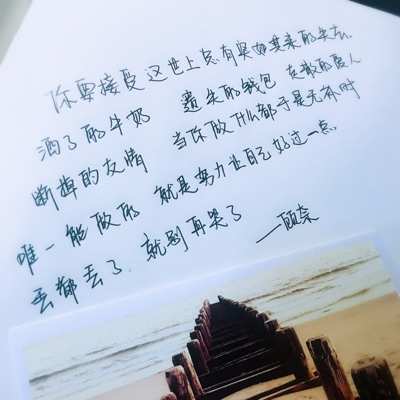 你要接受这世上总有突如其来的失去
洒了的牛奶 遗失的钱包 走散的爱人
断掉的友情 当你做什么都于是无补时
唯一能做的 就是努力让自己好过一点
丢都丢了 就别再哭了
——顾奈